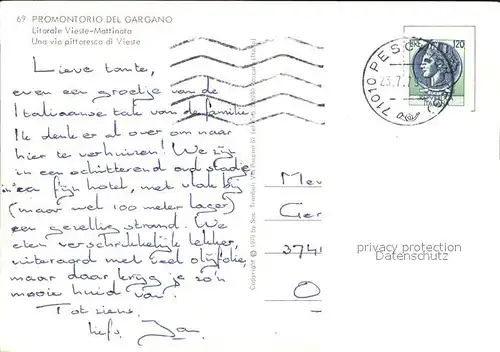 69 PROMONTORIO DEL GARGANO
Litorale Vieste-Mattinata
Una via pittoresca di Vieste
Lieve tante,
even een groetje van de
Italiaanse tak van de familie.
Ik denk er al over om naar
hier te verhuizen! We zijn
in een schitterend oud stadje
in een fijn hotel, met vlak bij
(maar wel 100 meter lager)
een gezellig strand. We
eten verschrikkelijk lekker,
uiteraard met veel olijfolie,
maar daar krijg je zo'n
mooie huid van.
Tot ziens,
liefs, Jan
120
71010 PESC
23.7.7
Mev
Ger
374
O
privacy protection
Datenschutz